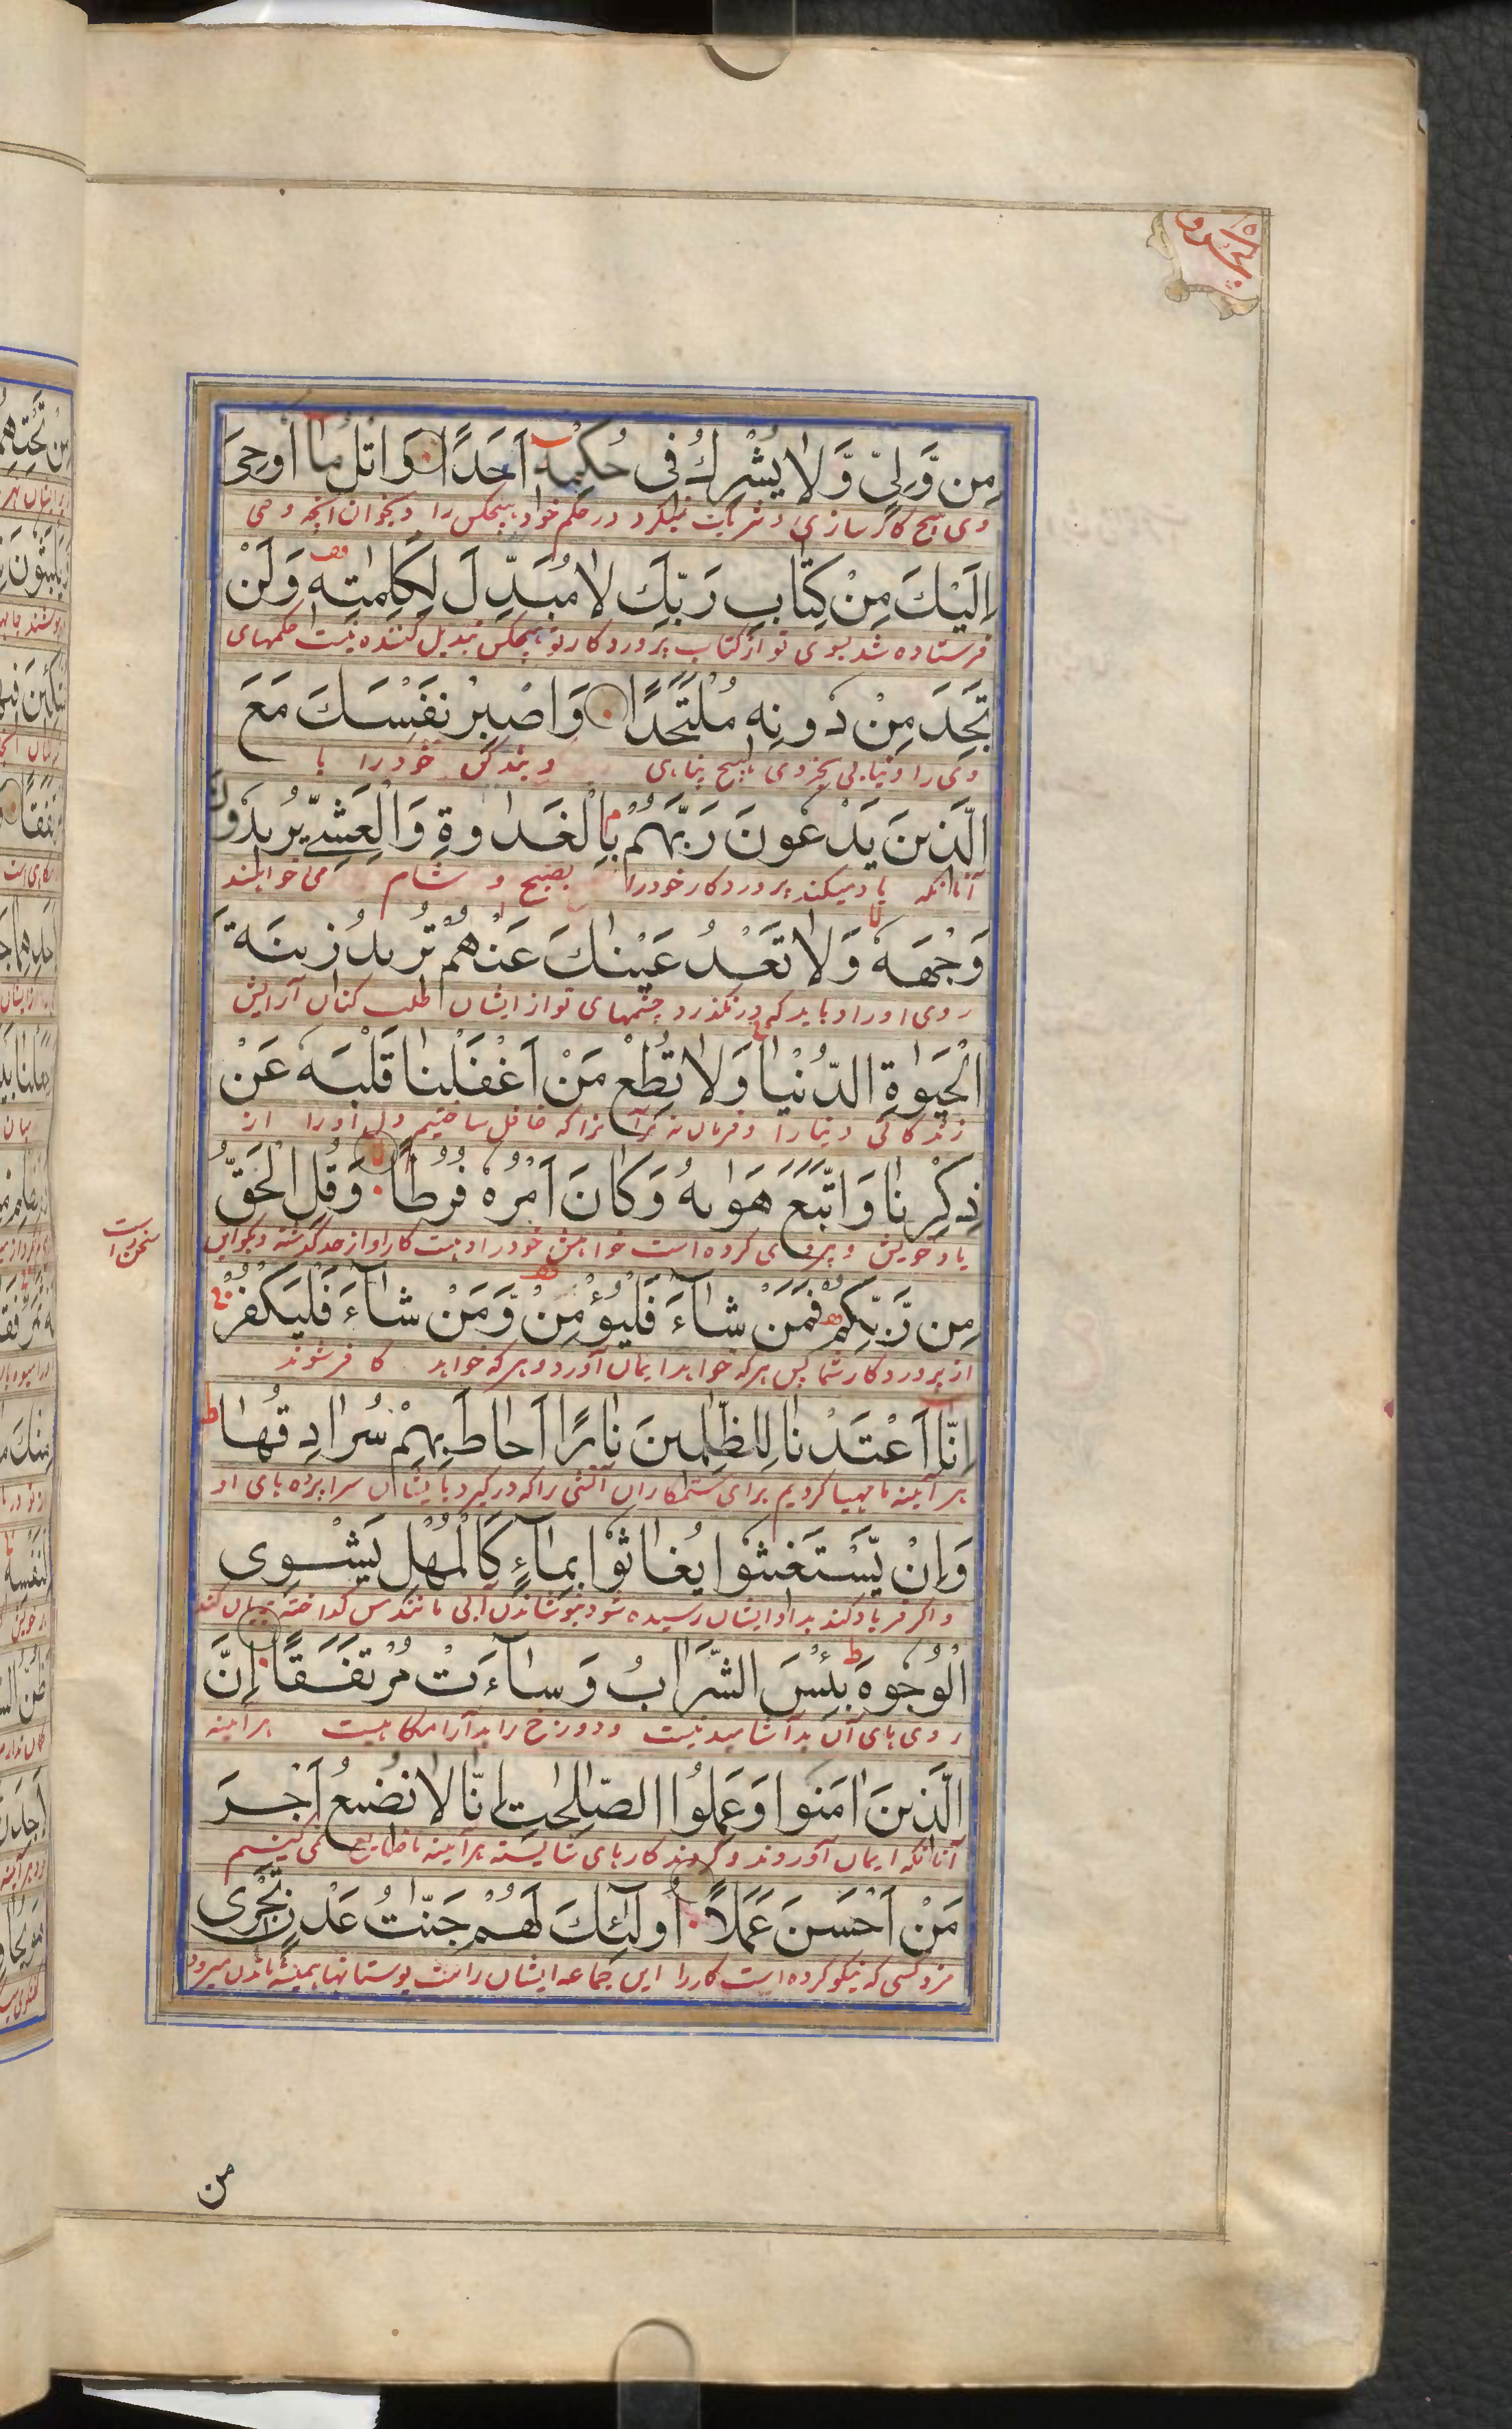 مِن وَّلِیٍّ وَّلَا یُشْرِكُ فِی حُكْمِهٖ اَحَدًا وَاتْلُ مَا اُوحِیَ
وی هیچ کارسازی و شریک نمیگرد در حکم خود هیچکس را و بخوان آنچه وحی
اِلَیْكَ مِنْ كِتَابِ رَبِّكَ لَا مُبَدِّلَ لِكَلِمٰتِهٖ وَلَنْ
فرستاده شد بسوی تو از کتاب پروردگار تو هیچکس تبدیل کننده نیست حکمهای
تَجِدَ مِنْ دُونِهٖ مُلْتَحَدًا وَاصْبِرْ نَفْسَكَ مَعَ
وی را و نیابی بجز وی هیچ پناهی و بند کن خود را با
الَّذِینَ یَدْعُونَ رَبَّهُمْ بِالْغَدٰوةِ وَالْعَشِیِّ یُرِیدُونَ
آنانکه یاد میکنند پروردگار خود را بصبح و شام می خواهند
وَجْهَهٗ وَلَا تَعْدُ عَیْنٰكَ عَنْهُمْ تُرِیدُ زِینَةَ
روی او را و باید که در نگذرد چشمهای تو از ایشان طلب کنان آرایش
الْحَیٰوةِ الدُّنْیَا وَلَا تُطِعْ مَنْ اَغْفَلْنَا قَلْبَهٗ عَنْ
زندگانی دنیا را و فرمان مبر آنرا که غافل ساختیم دل او را از
ذِكْرِنَا وَاتَّبَعَ هَوٰىهُ وَكَانَ اَمْرُهٗ فُرُطًا وَقُلِ الْحَقُّ
یاد خویش و پیروی کرده است خواهش خود را و هست کار او از حد گذشته و بگو این
سخن راست
مِن رَّبِّكُمْ فَمَنْ شَآءَ فَلْیُؤْمِنْ وَّمَنْ شَآءَ فَلْیَكْفُرْ
از پروردگار شما پس هر که خواهد ایمان آورد و هر که خواهد کافر شوند
اِنَّا اَعْتَدْنَا لِلظّٰلِمِینَ نَارًا اَحَاطَ بِهِمْ سُرَادِقُهَا
هر آینه ما مهیا کردیم برای ستمکاران آتشی را که در گیرد بایشان سراپرده های او
وَاِنْ یَّسْتَغِیثُوا یُغَاثُوا بِمَآءٍ كَالْمُهْلِ یَشْوِی
و اگر فریاد کنند بداد ایشان رسیده شود بنوشاندن آبی مانند مس گداخته بریان کند
الْوُجُوهَ بِئْسَ الشَّرَابُ وَسَآءَتْ مُرْتَفَقًا اِنَّ
روی های آن بد آشامیدنیست و دوزخ را بد آرامگاهیست هر آینه
الَّذِینَ اٰمَنُوا وَعَمِلُوا الصّٰلِحٰتِ اِنَّا لَا نُضِیعُ اَجْرَ
آنانکه ایمان آوردند و کردند کارهای شایسته هر آینه ما ضایع نمی کنیم
مَنْ اَحْسَنَ عَمَلًا اُولٰٓئِكَ لَهُمْ جَنّٰتُ عَدْنٍ تَجْرِی
مزد کسی که نیکو کرده است کار را این جماعه ایشان راست بوستانها همیشه ماندن میرود
من